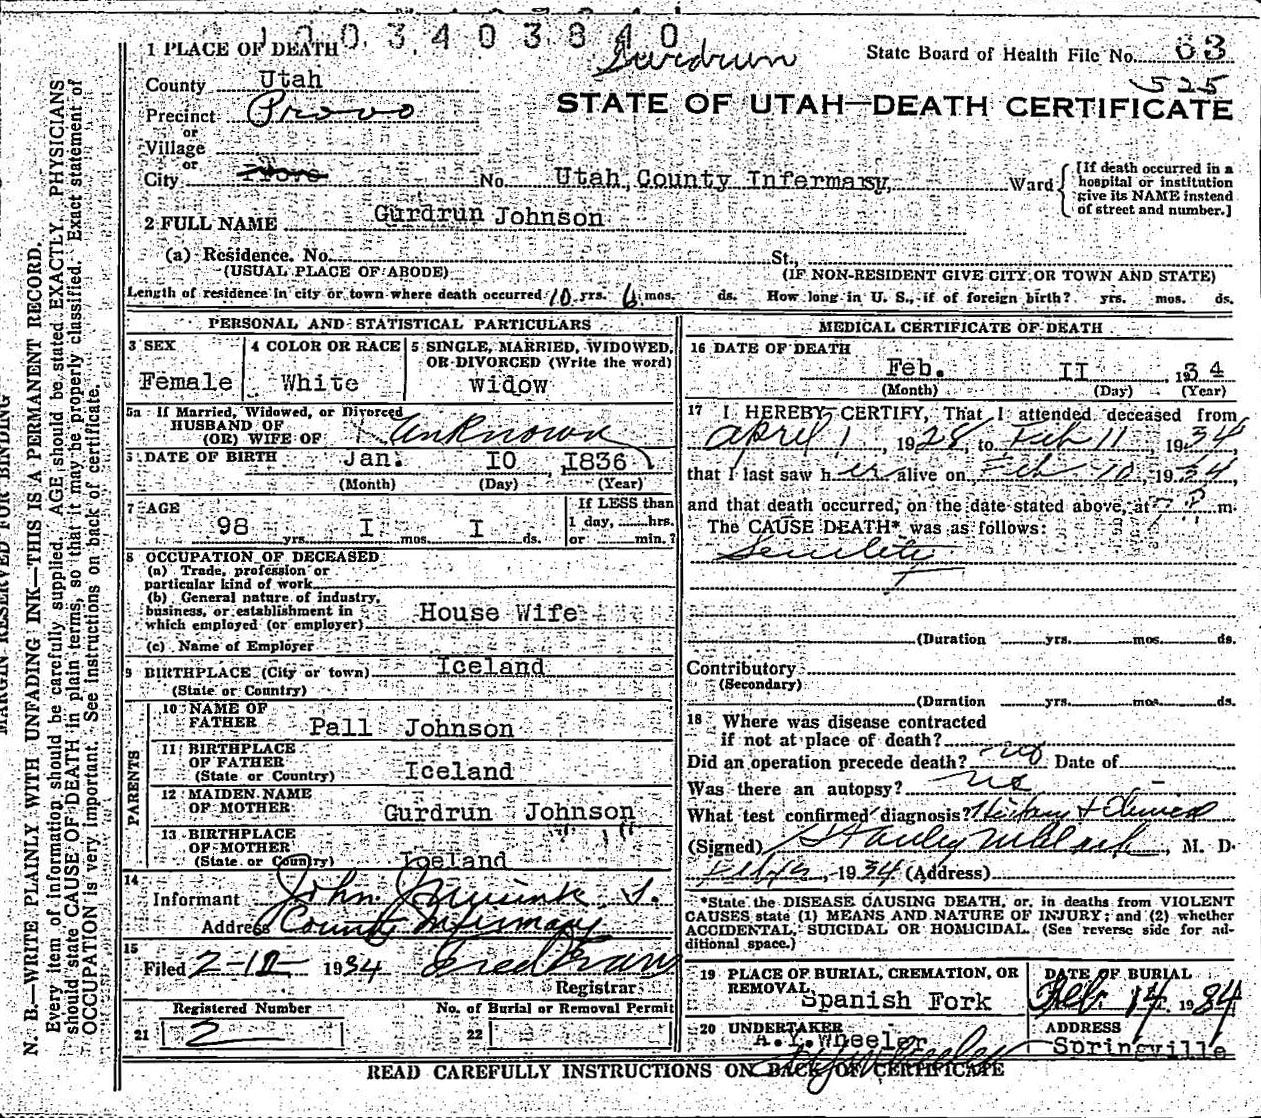 1003403840
State Board of Health File No. 63
525
STATE OF UTAH—DEATH CERTIFICATE
1 PLACE OF DEATH
County Utah
Precinct Provo
or
Village
or
City No. Utah County Infermary, Ward
[If death occurred in a
hospital or institution
give its NAME instead
of street and number.]
2 FULL NAME Gurdrun Johnson
(a) Residence. No. St.,
(USUAL PLACE OF ABODE) (IF NON-RESIDENT GIVE CITY OR TOWN AND STATE)
Length of residence in city or town where death occurred 10 yrs. 6 mos. ds. How long in U. S., if of foreign birth? yrs. mos. ds.
PERSONAL AND STATISTICAL PARTICULARS
3 SEX
Female
4 COLOR OR RACE
White
5 SINGLE, MARRIED, WIDOWED,
OR DIVORCED (Write the word)
Widow
5a If Married, Widowed, or Divorced
HUSBAND OF
(OR) WIFE OF Unknown
6 DATE OF BIRTH Jan. IO 1836
(Month) (Day) (Year)
7 AGE
98 yrs. I mos. I ds.
If LESS than
1 day, hrs.
or min.?
8 OCCUPATION OF DECEASED
(a) Trade, profession or
particular kind of work
(b) General nature of industry,
business, or establishment in
which employed (or employer) House Wife
(c) Name of Employer
9 BIRTHPLACE (City or town) Iceland
(State or Country)
PARENTS
10 NAME OF
FATHER Pall Johnson
11 BIRTHPLACE
OF FATHER
(State or Country) Iceland
12 MAIDEN NAME
OF MOTHER Gurdrun Johnson
13 BIRTHPLACE
OF MOTHER
(State or Country) Iceland
14
Informant John
Address County Infirmary
15
Filed 1934
Registrar
Registered Number
21 2
No. of Burial or Removal Permit
22
MEDICAL CERTIFICATE OF DEATH
16 DATE OF DEATH
Feb. II 1934
(Month) (Day) (Year)
17 I HEREBY CERTIFY, That I attended deceased from
April 1, 1928, to Feb 11, 1934
that I last saw her alive on Feb 10, 1934,
and that death occurred, on the date stated above, at 7 P m.
The CAUSE DEATH* was as follows:
Senility
(Duration yrs. mos. ds.
Contributory
(Secondary)
(Duration yrs. mos. ds.
18 Where was disease contracted
if not at place of death?
Did an operation precede death? no Date of
Was there an autopsy? no
What test confirmed diagnosis? History +
(Signed) , M. D.
1934 (Address)
*State the DISEASE CAUSING DEATH, or, in deaths from VIOLENT
CAUSES state (1) MEANS AND NATURE OF INJURY; and (2) whether
ACCIDENTAL, SUICIDAL OR HOMICIDAL. (See reverse side for ad-
ditional space.)
19 PLACE OF BURIAL, CREMATION, OR
REMOVAL
Spanish Fork
DATE OF BURIAL
Feb. 14 1934
20 UNDERTAKER
A.Y.Wheeler
ADDRESS
Springville
READ CAREFULLY INSTRUCTIONS ON BACK OF CERTIFICATE
MARGIN RESERVED FOR BINDING
N. B.—WRITE PLAINLY WITH UNFADING INK—THIS IS A PERMANENT RECORD.
Every item of information should be carefully supplied. AGE should be stated EXACTLY. PHYSICIANS
should state CAUSE OF DEATH in plain terms, so that it may be properly classified. Exact statement of
OCCUPATION is very important. See instructions on back of certificate.